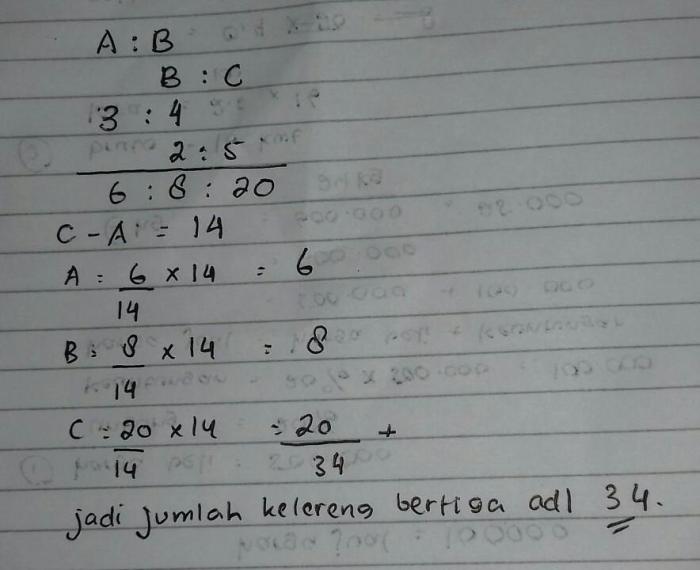 A : B
B : C
3 : 4
2 : 5
6 : 8 : 20
C - A = 14
A = 6/14 × 14 = 6
B = 8/14 × 14 = 8
C = 20/14 × 14 = 20 +
34
jadi jumlah kelereng bertiga adl 34.